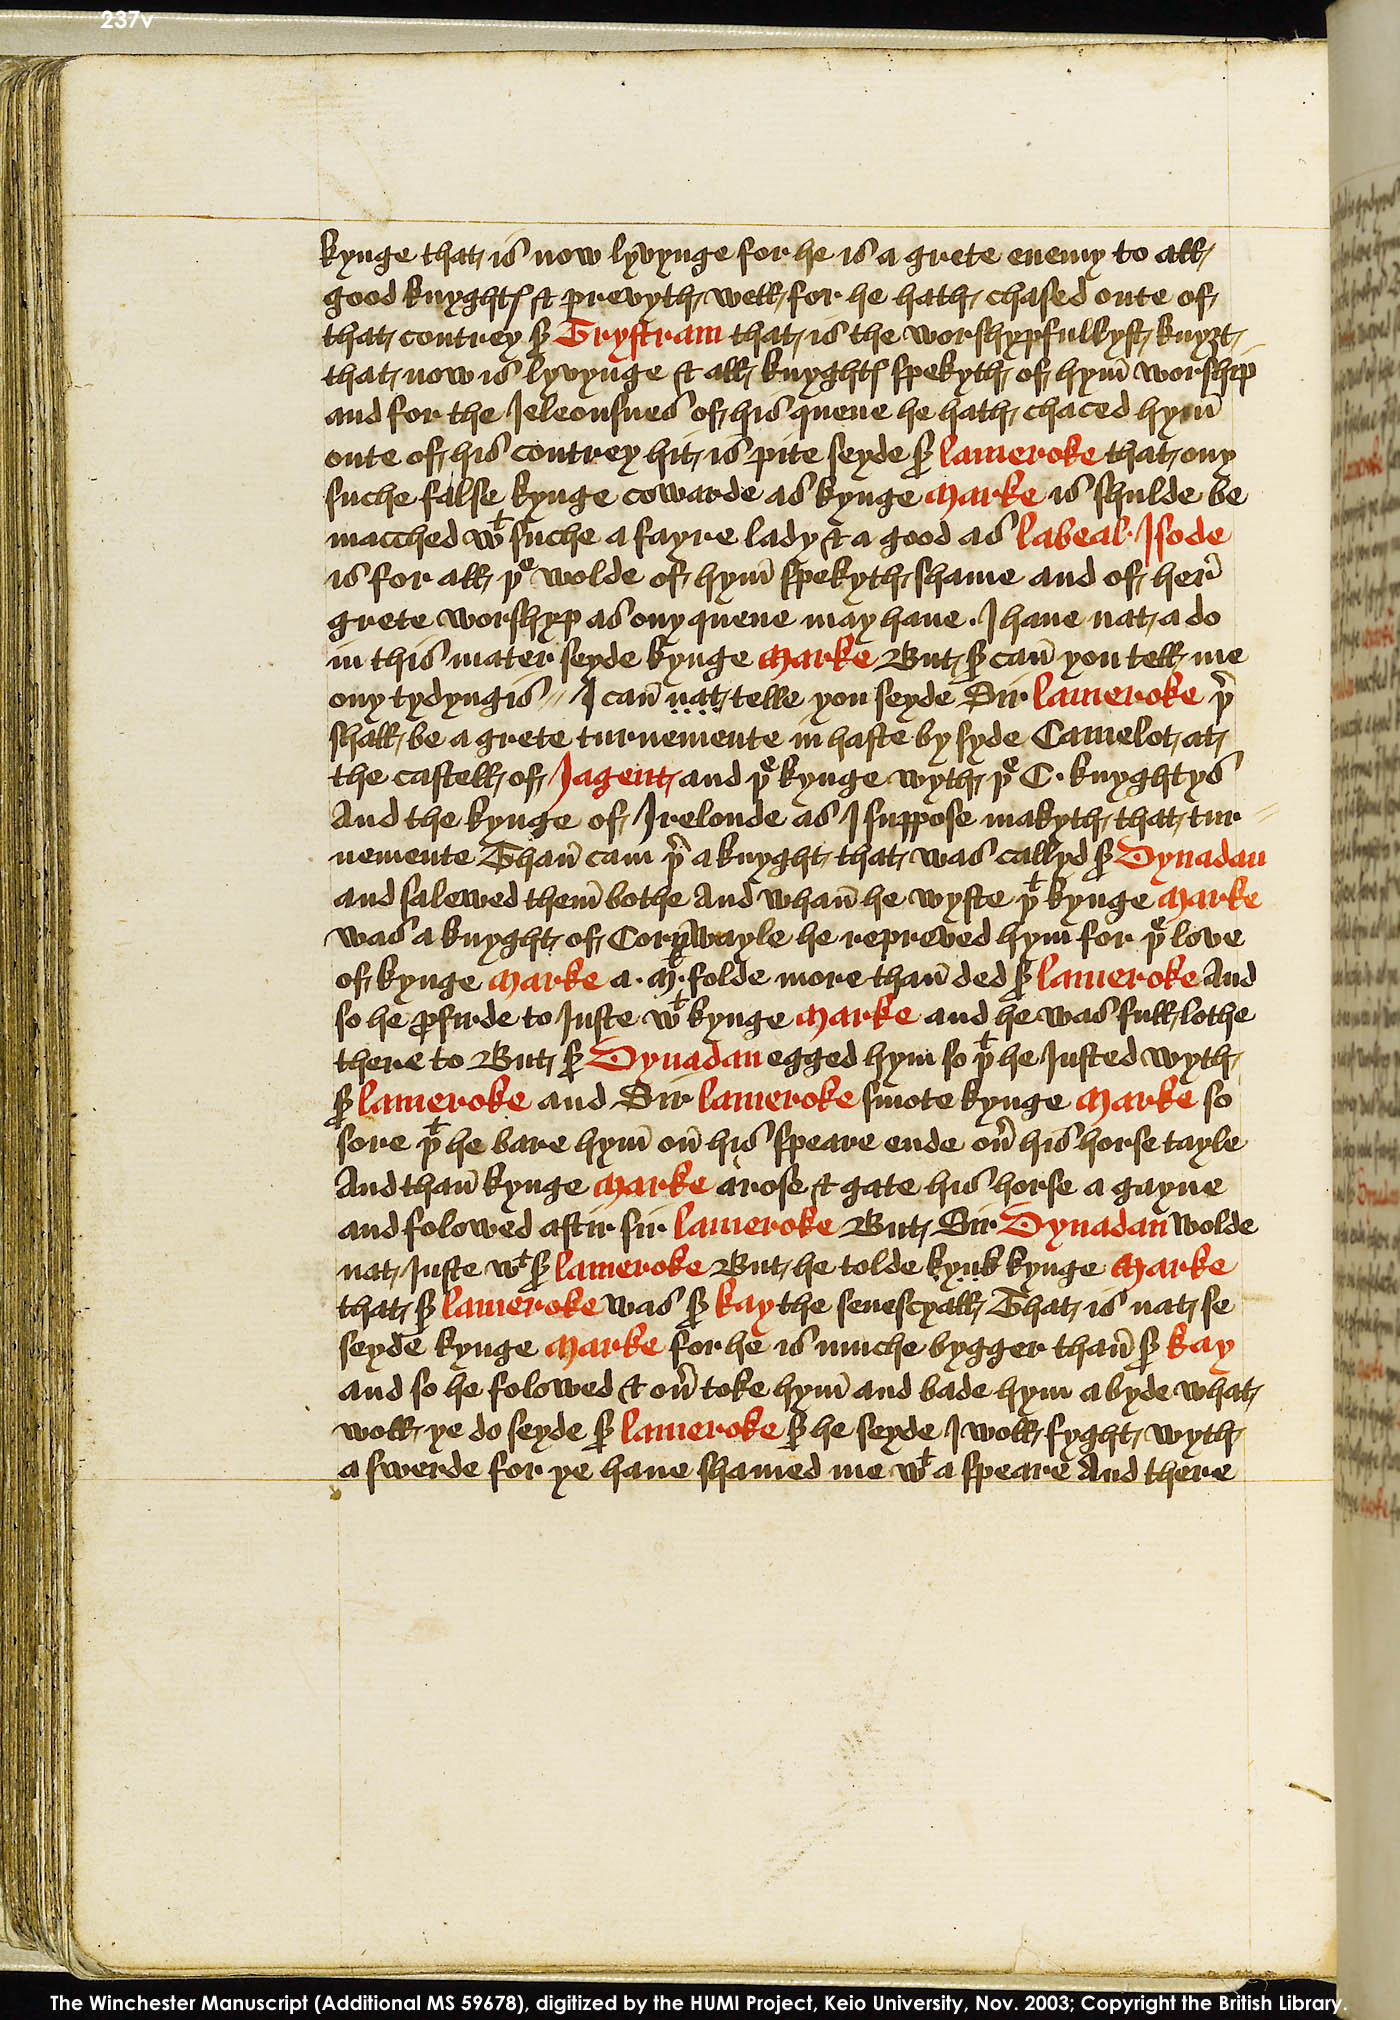 237v
kynge that is now lyvynge for he is a grete enemy to all
good knyghtꝭ & prevyth well for he hath chased oute of
that contrey sꝛ Trystram that is the worshypfullyst knyȝt
that now is lyvynge & all knyghtꝭ spekyth of hym̄ worship
and for the Ieleousnes of his quene he hath chaced hym̄
oute of his contrey hit is pite seyde sꝛ lameroke that ony
suche false kynge cowarde as kynge Marke is shulde be
macched wᵗ suche a fayre lady & a good as labeal Isode
is for all yᵉ wolde of hym̄ spekyth shame and of her
grete worshyp as ony quene may have . I have nat a do
in this mater seyde kynge Marke But sꝛ can̄ you tell me
ony tydyngis // I can̄ ṇạṭ telle you seyde Sir lameroke yʳ
shall be a grete turnemente in haste by syde Camelot at
the castell of Iagent and yᵉ kynge wyth yᵉ C · knyghtys
And the kynge of Irelonde as I suppose makyth that tur //
nemente Than̄ cam yʳ a knyght that was callyd sꝛ Dynadan
and salewed them̄ bothe And whan̄ he wyste yᵗ kynge Marke
was a knyght of Cornwayle he repreved hym for yᵉ love
of kynge Marke a · Mˡ · folde more than̄ ded sꝛ lameroke And
so he ꝓfirde to Iuste wᵗ kynge Marke and he was full lothe
there to But sꝛ Dynadan egged hym so yᵗ he Iusted wyth
sꝛ lameroke and Sir lameroke smote kynge Marke so
sore yᵗ he bare hym̄ on̄ his speare ende oū his horse tayle
And than̄ kynge Marke arose & gate his horse a gayne
and folowed aftir sir lameroke But Sir Dynadan wolde
nat Iuste wᵗ sꝛ lameroke But he tolde ḳỵṇḳ kynge Marke
that sꝛ lameroke was sꝛ kay the senescyall That is nat se
seyde kynge Marke for he is muche bygger than̄ sꝛ kay
and so he folowed & oū toke hym̄ and bade hym abyde what
woll ye do seyde sꝛ lameroke sꝛ he seyde I woll fyght wyth
a swerde for ye have shamed me wᵗ a speare And there
The Winchester Manuscript (Additional MS 59678), digitized by the HUMI Project, Keio University, Nov. 2003; Copyright the British Library.